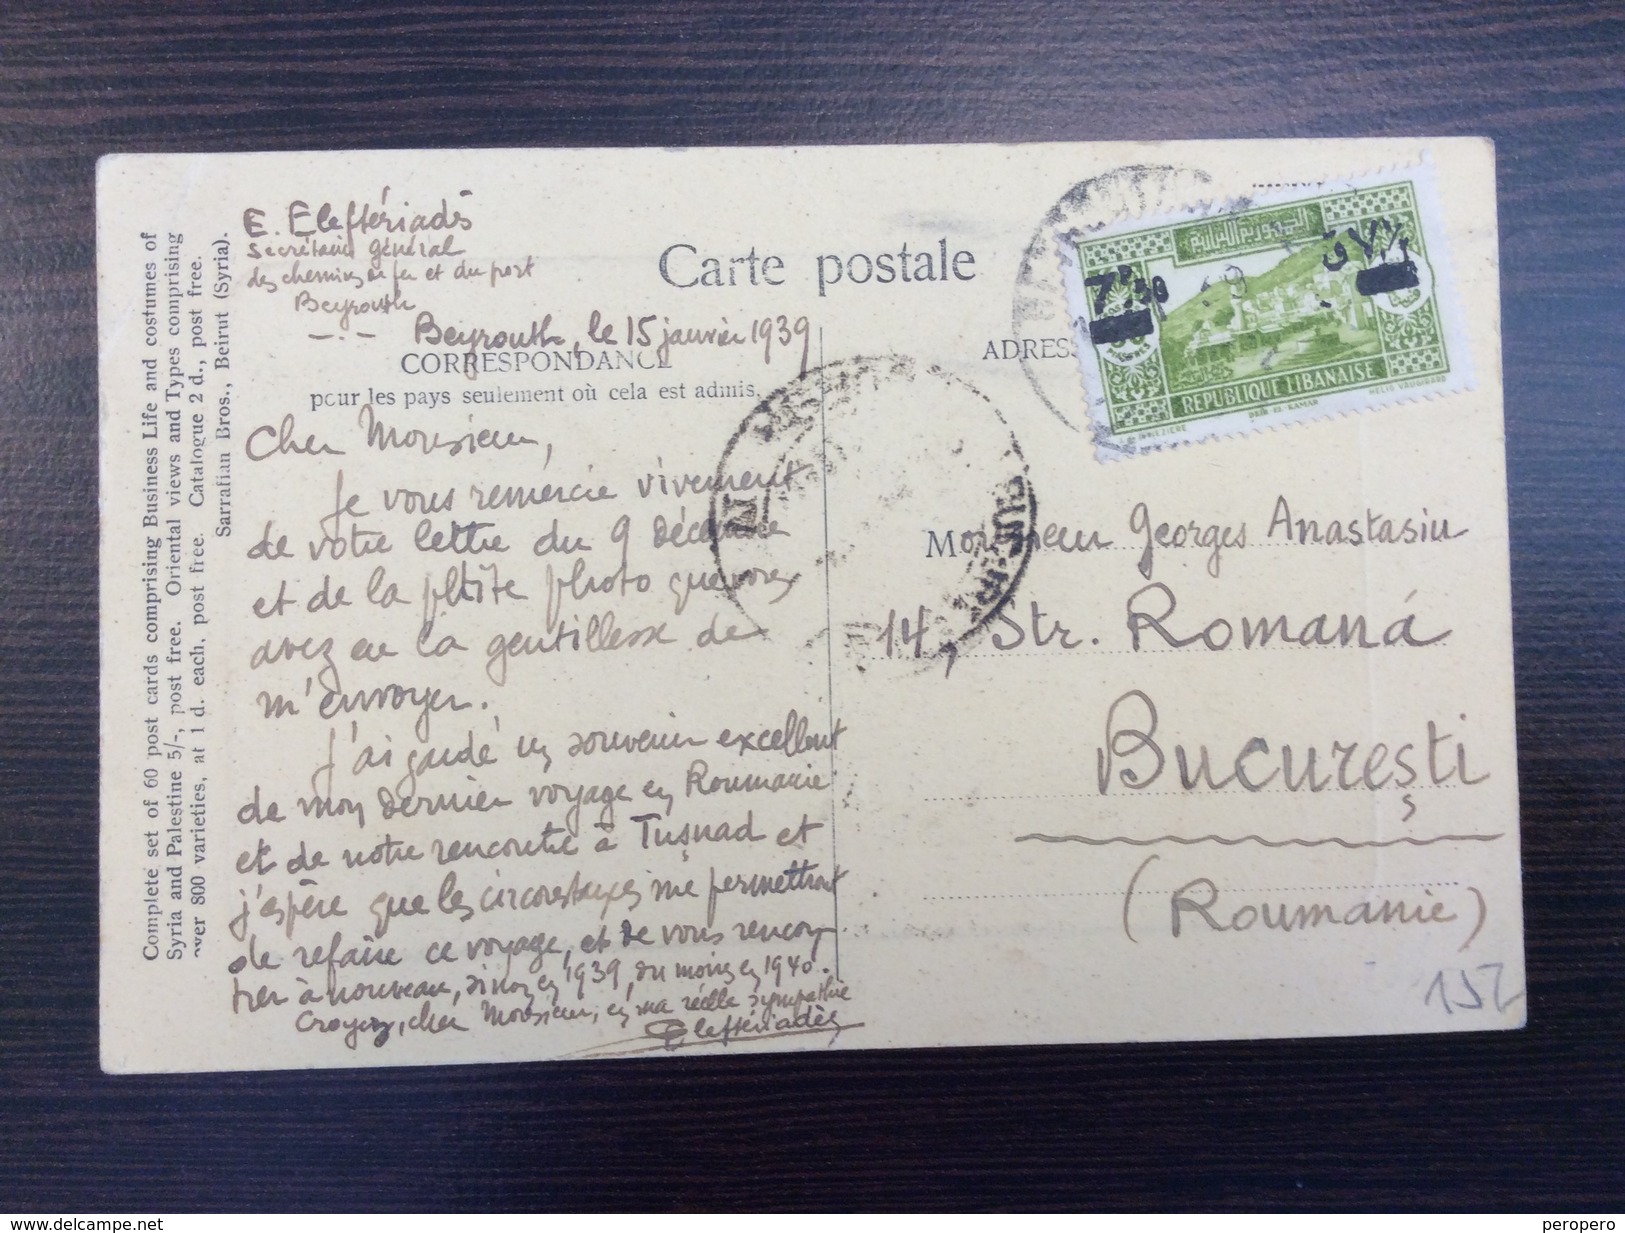 Complete set of 60 post cards comprising Business Life and costumes of
Syria and Palestine 5/-, post free. Oriental views and Types comprising
over 800 varieties, at 1 d. each, post free. Catalogue 2 d., post free.
Sarrafian Bros., Beirut (Syria).
E. Eleftériadès
Secrétaire général
des chemins de fer et du port
Beyrouth
Carte postale
Beyrouth, le 15 janvier 1939
CORRESPONDANCE
pour les pays seulement où cela est admis.
Cher Monsieur,
Je vous remercie vivement
de votre lettre du 9 décembre
et de la petite photo que vous
avez eu la gentillesse de
m'envoyer.
J'ai gardé un souvenir excellent
de mon dernier voyage en Roumanie
et de notre rencontre à Tuşnad et
j'espère que les circonstances me permettront
de refaire ce voyage, et de vous rencon-
trer à nouveau, sinon en 1939, du moins en 1940.
Croyez, cher Monsieur, en ma réelle sympathie
Eleftériadès
ADRESS
7P50
٧١/٢ ق
الجمهورية اللبنانية
PIASTRES
REPUBLIQUE LIBANAISE
DEIR EL KAMAR
HELIO VAUGIRARD
Monsieur Georges Anastasiu
14, Str. Romană
Bucureşti
(Roumanie)
152
www.delcampe.net
peropero